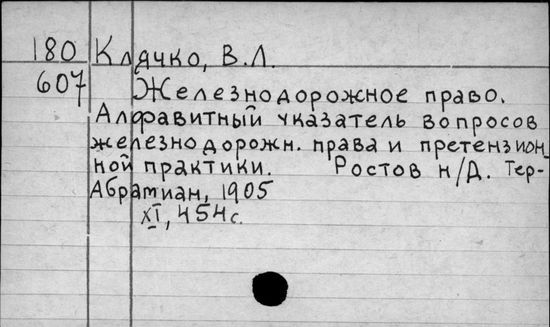 180 Клячко, В.Л.
607 Железнодорожное право.
Алфавитный указатель вопросов
железнодорожн. права и претензион-
ной практики. Ростов н/Д. Тер-
Абрамиан, 1905
XI, 454 с.